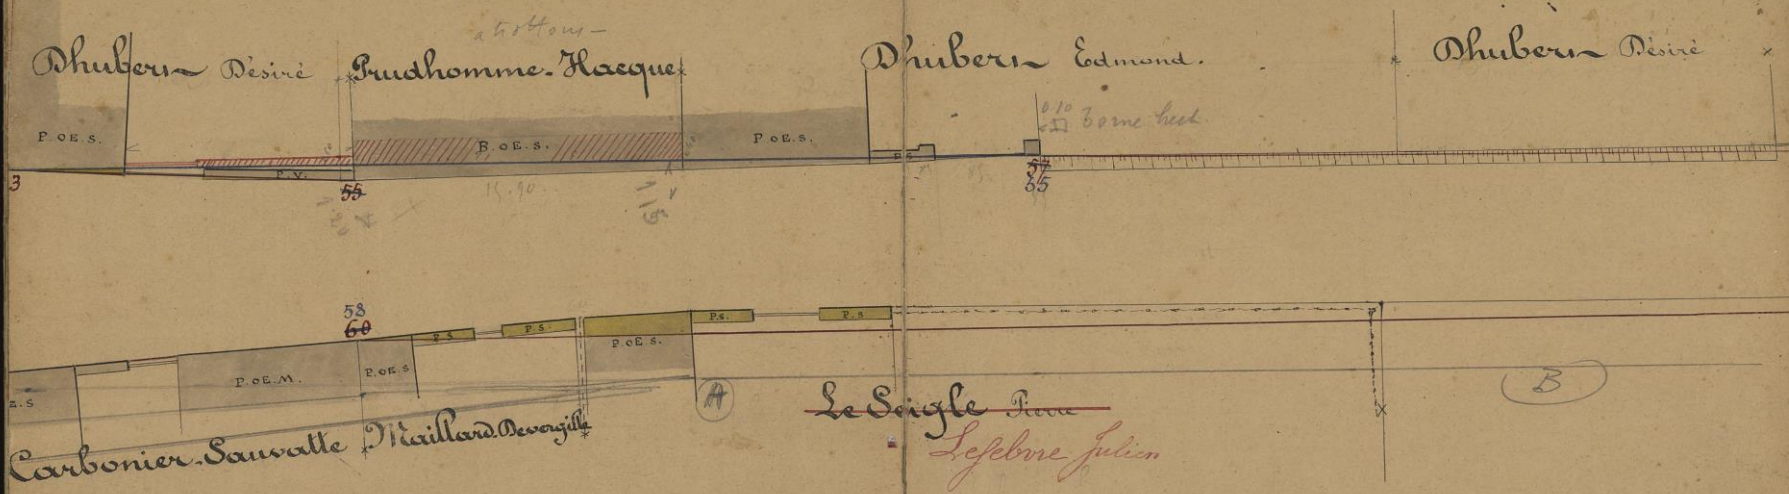 Dhubern Désiré
Prudhomme-Hacque
Dhubern Edmond.
Dhubern Désiré
P. OE. S.
B. OE. S.
P. OE. S.
0.10
borne hect.
P. V.
P.S
3
55
15.90
57
55
58
60
P.S
P.S
P.S.
P.S
P. OE. S.
P. OE. M.
P. OE. S
E. S
A
B
Carbonier-Sauvatte
Maillard-Devergille
Le Seigle Pierre
Lefebvre Julien